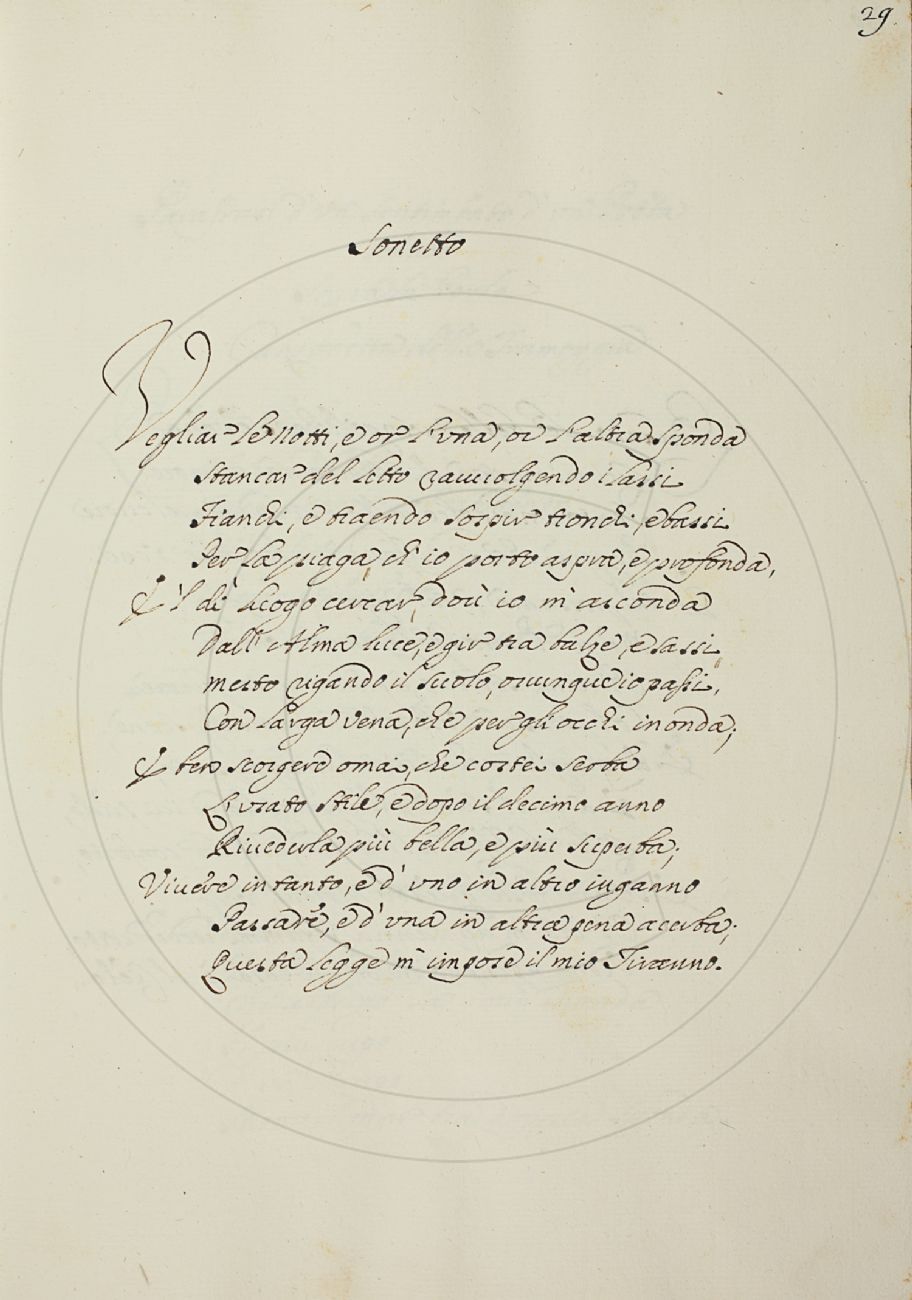 29.
Sonetto
Vegliar le Notti, e or l'una, or l'altra sponda
Stancar del letto ravvolgendo i lassi
Fianchi, e traendo sospir tronchi, e bassi
Per la piaga, ch'io porto aspra, e profonda,
E 'l dì luogo cercar, dov' io m'asconda
Dall' Alma luce, e gir tra balze, e sassi
mesto rigando il suolo, ovunque io passi,
Con larga vena, che per gli occhi inonda;
E ben scorgere omai, che costei serba
L'usato stile, e dopo il decimo anno
Rivederla più bella, e più superba;
Vivere in tanto, e d' uno in altro inganno
Passare, e d' una in altra pena acerba;
Questa legge m' impose il mio Tiranno.